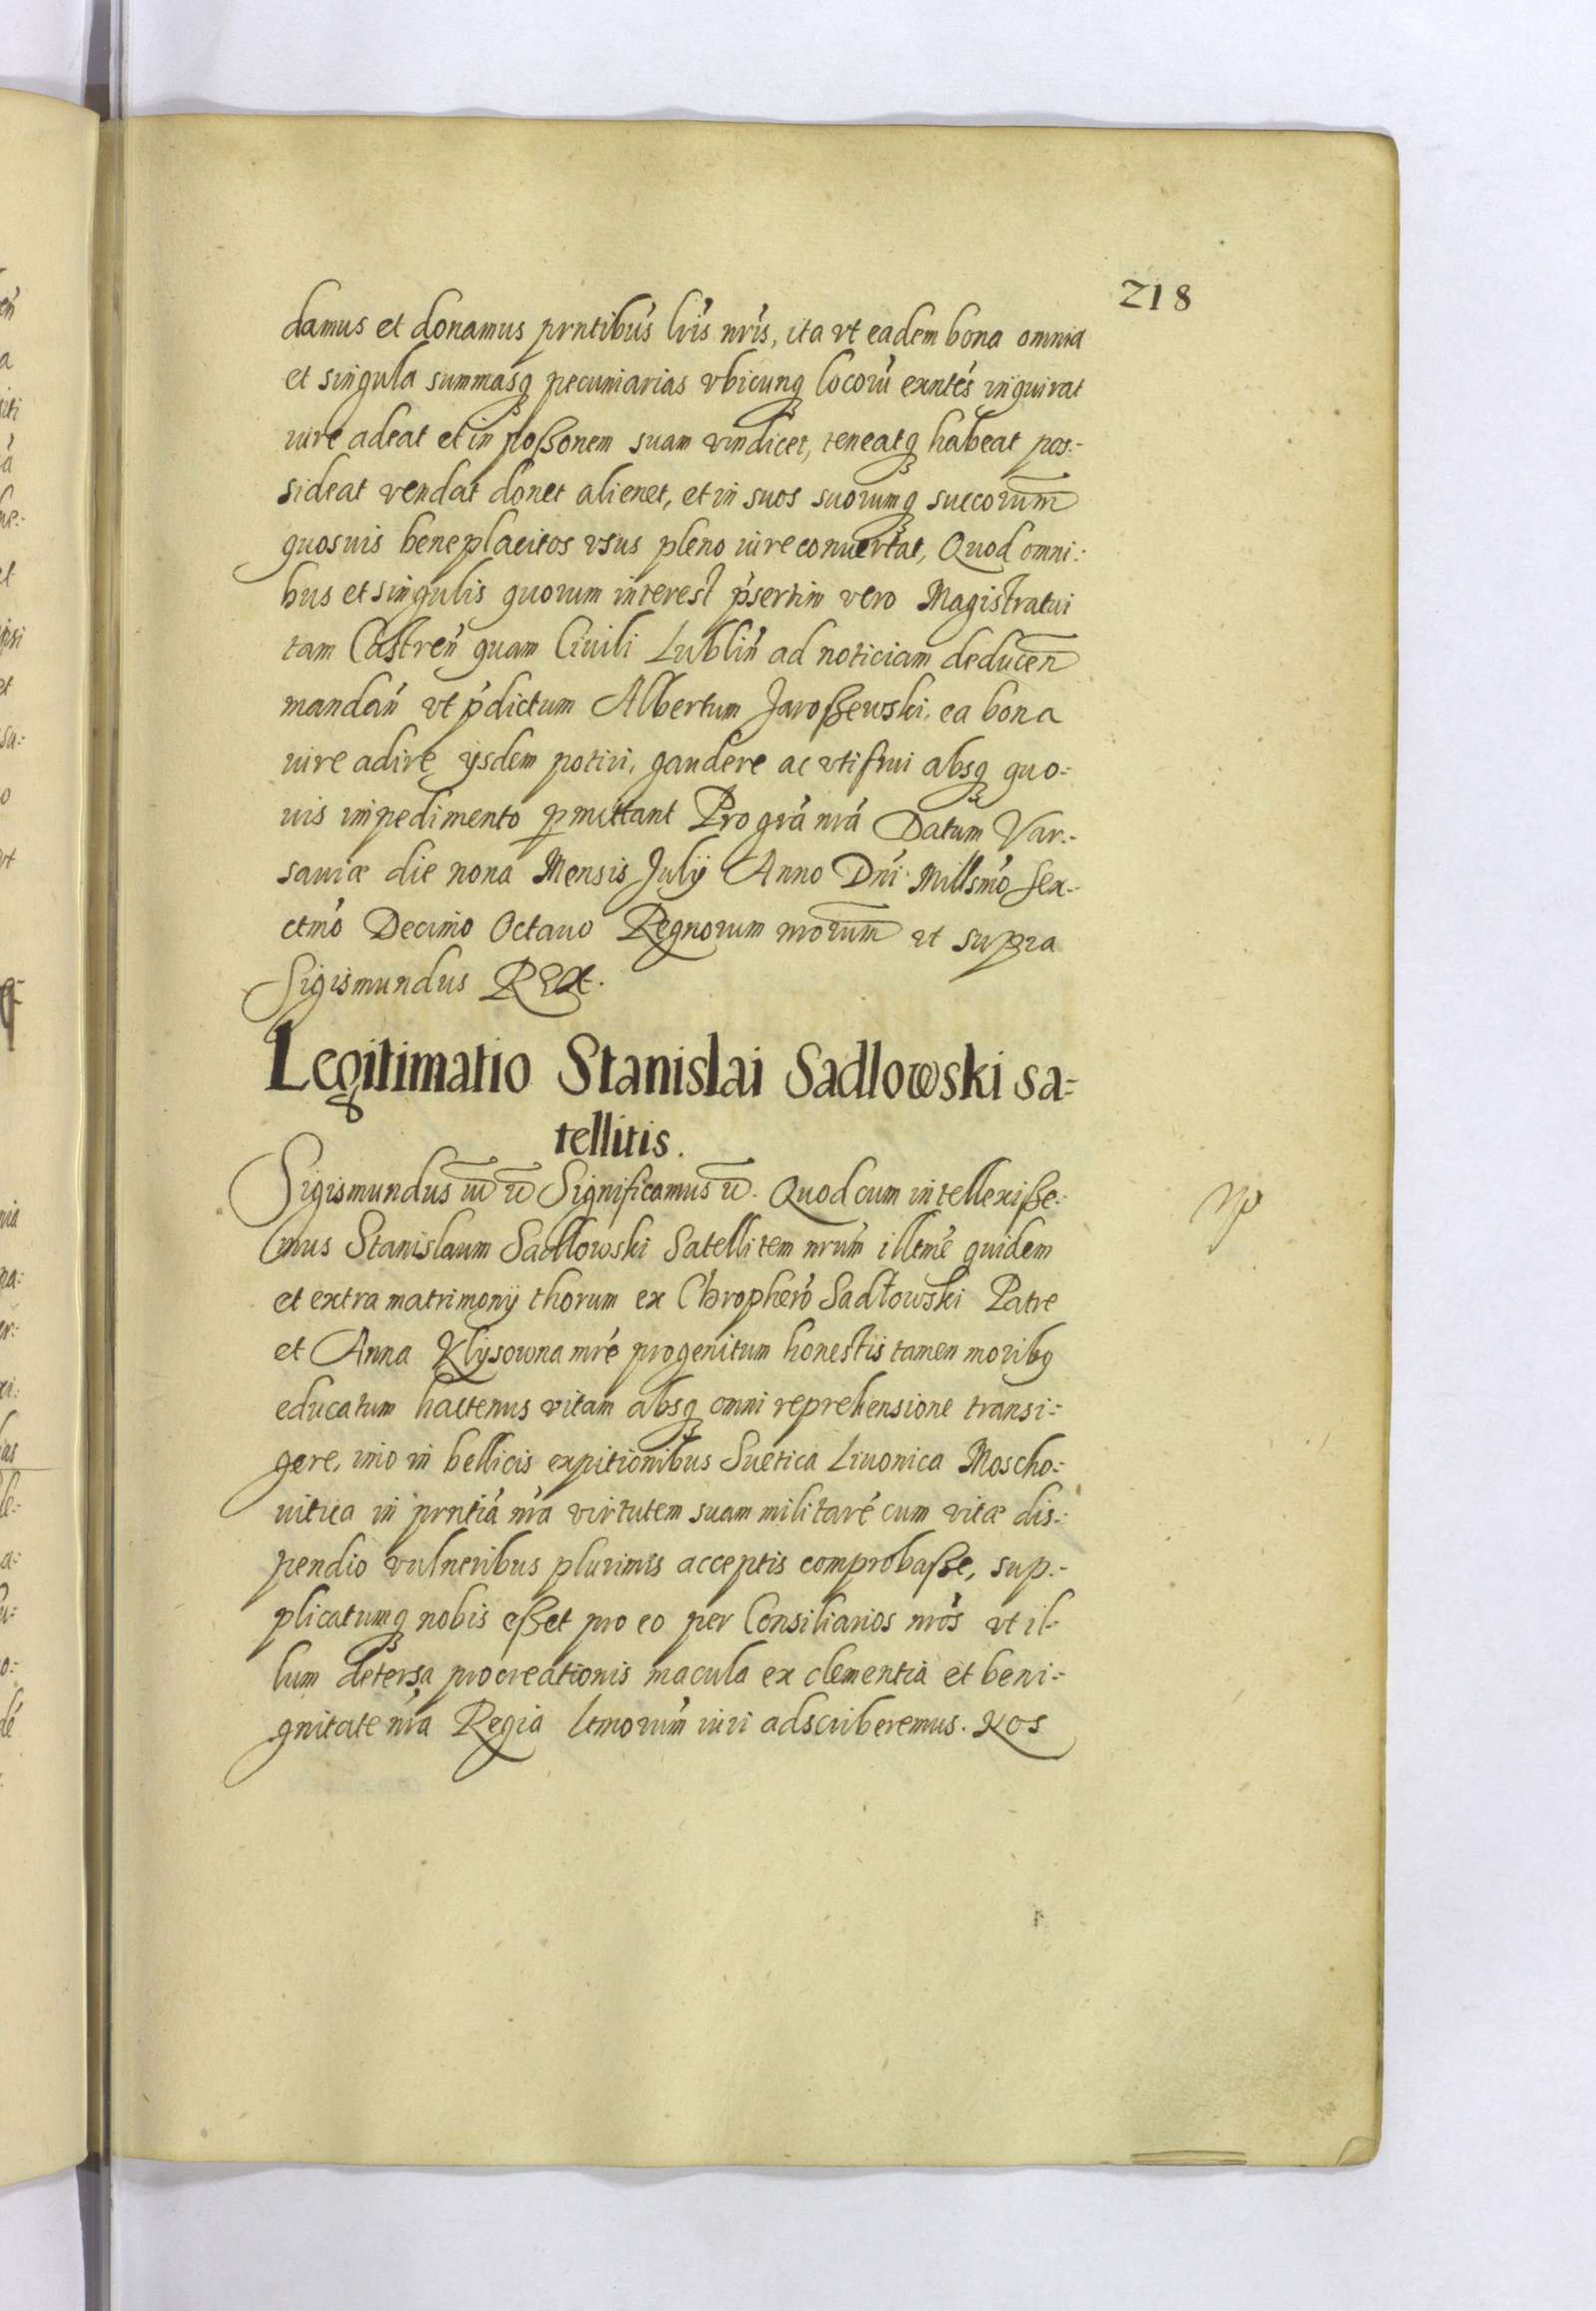 218
damus et donamus prntibus lris nris, ita vt eadem bona omnia
et singula summasq pecuniarias vbicunq locorũ exntes inquirat
iure adeat et in poßonem suam vindicet, teneatq habeat pos:-
sideat vendat donet alienet, et in suos suorumq succorum
quosuis beneplacitos vsus pleno iure conuertat, Quod omni:-
bus et singulis quorum interest p̃sertim vero Magistratui
tam Castren̄ quam Ciuili Lublin̄ ad noticiam deducen̄
mandan̄ vt p̃dictum Albertum Jaroßewski, ea bona
iure adire ijsdem potiri, gaudere ac vtifrui absq quo:-
uis impedimento pmittant Pro gra nra Datum Var:-
sauiæ die nona Mensis Julij Anno Dni Millsmo Sex:-
ctmo Decimo Octauo Regnorum nrorum vt supra
Sigismundus Rex.
Legitimatio Stanislai Sadlowski sa=
tellitis.
Sigismundus Significamus Quod cum intellexiße:-
mus Stanislaum Sadlowski Satellitem nrum illtme quidem
et extra matrimonij thorum ex Chrophero Sadłowski Patre
et Anna Klysowna mre progenitum honestis tamen moribq
educatum hactenus vitam absq omni reprehensione transi:-
gere, imo in bellicis expitionibus Suetica Liuonica Moscho:-
uitica in prntia nra virtutem suam militare cum vitæ dis:-
pendio vulneribus plurimis acceptis comprobaße, sup:-
plicatumq nobis eßet pro eo per Consiliarios nros vt il-
lum detersa procreationis macula ex clementia et beni:-
gnitate nra Regia ltmorum iuri adscriberemus. Nos